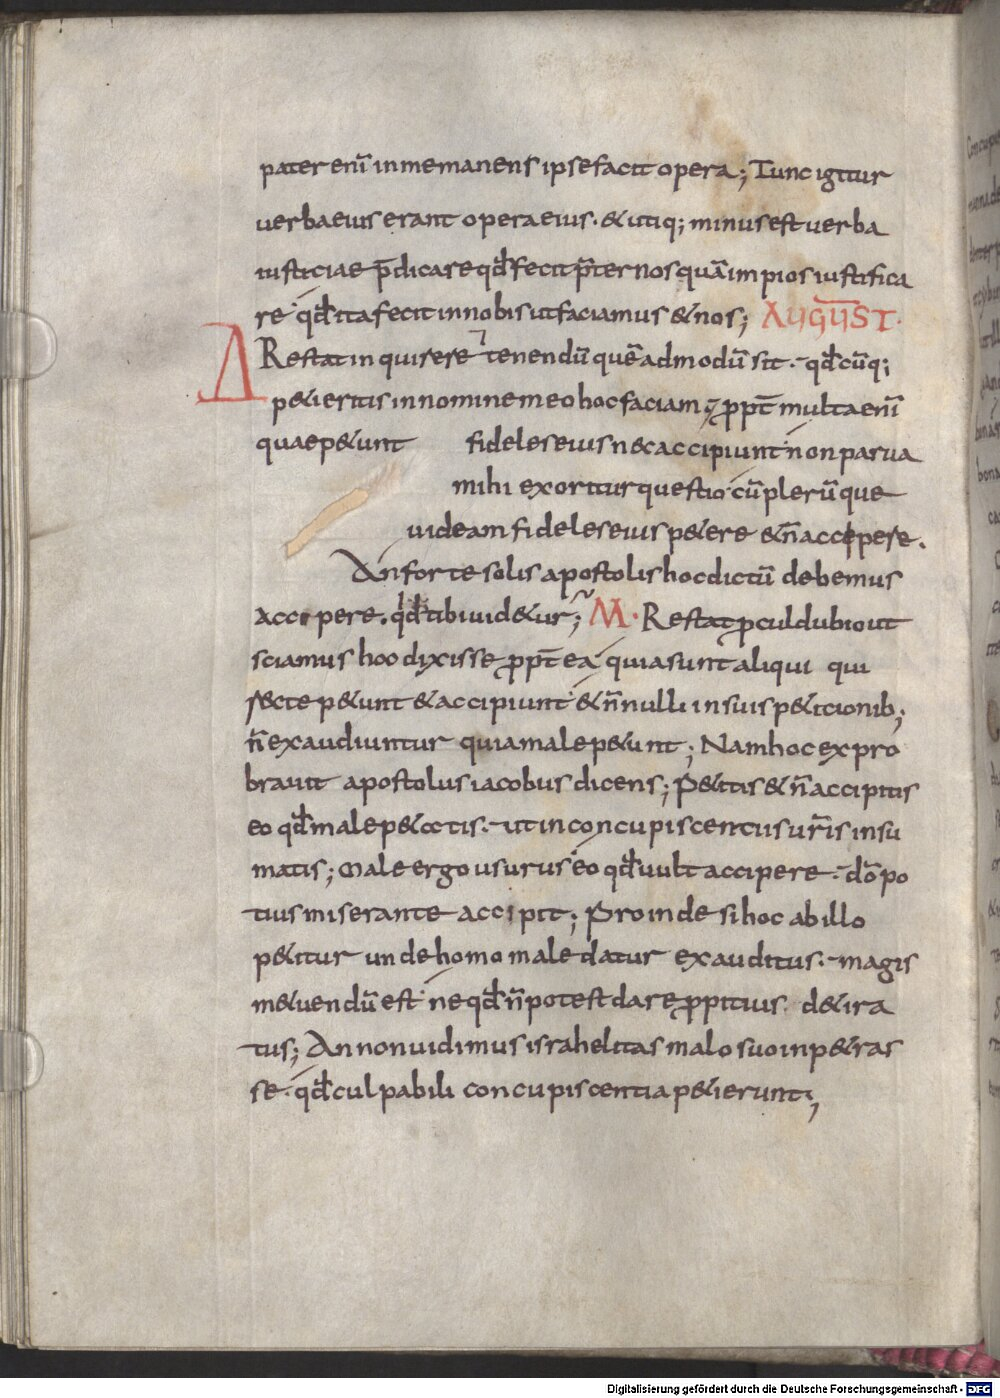 pater eni̅ in me manens ipse facit opera; Tunc igitur
verba eius erant opera eius. & utiq; minus est verba
iusticiae p̅dicare qđ fecit p̅ter nos quā impios iustifica
re qđ ita fecit in nobis ut faciamus & nos; AUGUST.
Δ Restat inquirere 7 tenendū quēadmodū sit. qđcūq;
p&ieritis in nomine meo hoc faciam; ꝓpt̅ multa eni̅
quae p&unt fideles eius nec accipiunt non parva
mihi exoritur questio cū plerūque
videam fideles eius p&ere & n̅ accepere.
An forte solis apostolis hoc dictū debemus
accipere. qđ tibi vid&ur; M. Restat proculdubio ut
sciamus hoc dixisse ꝓpt̅ ea quia sunt aliqui qui
recte p&unt & accipiunt & n̅nulli in suis p&icionib;
n̅ exaudiuntur quia male p&unt; Nam hoc expro
bravit apostolus iacobus dicens; P&itis & n̅ accipitis
eo qđ male p&atis. ut in concupiscentiis ur̅is insu
matis; Male ergo usurus eo qđ vult accipere. do̅ po
tius miserante accipit; Proinde si hoc ab illo
p&itur unde homo male datur exauditus. magis
m&uendū est ne qđ n̅ potest dare ꝓpitius. d& ira
tus; An non vidimus israhelitas malo suo inp&ras
se. qđ culpabili concupiscentia p&ierunt;
Digitalisierung gefördert durch die Deutsche Forschungsgemeinschaft - DFG